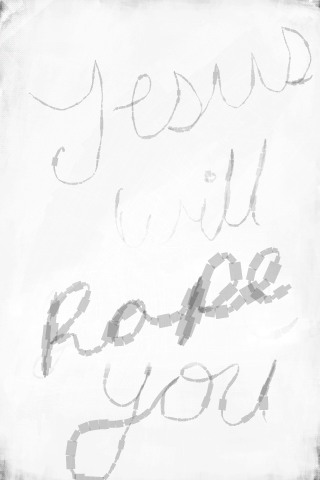 Jesus
will
Rope
you